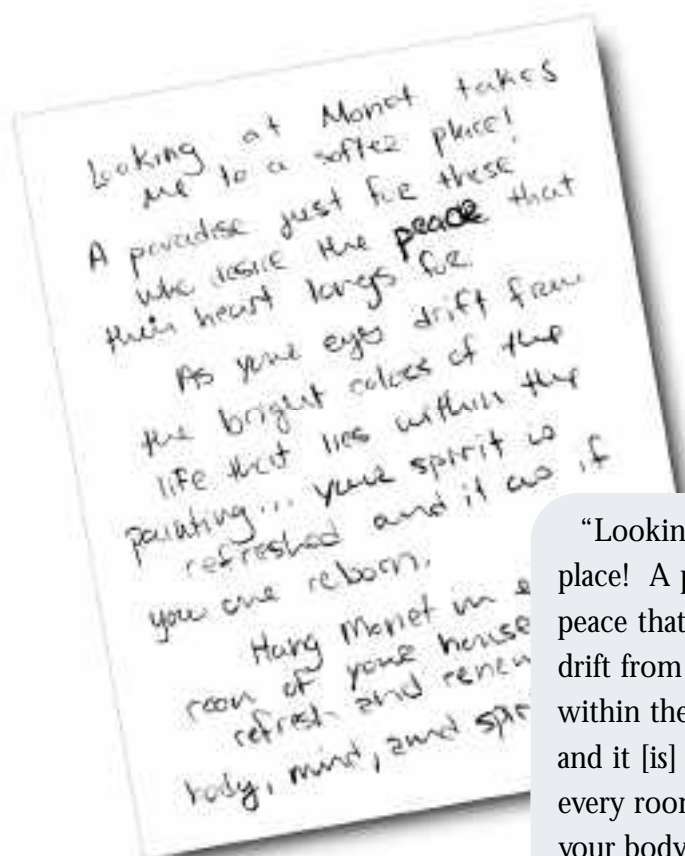 Looking at Monet takes
me to a softer place!
A paradise just for those
who desire the peace that
their heart longs for.
As your eyes drift from
the bright colors of the
life that lies within the
painting... your spirit is
refreshed and it as if
you are reborn.
Hang Monet in e
room of your house
refresh and renew
body, mind, and spir
“Lookin
place! A p
peace that
drift from
within the
and it [is]
every roon
your body